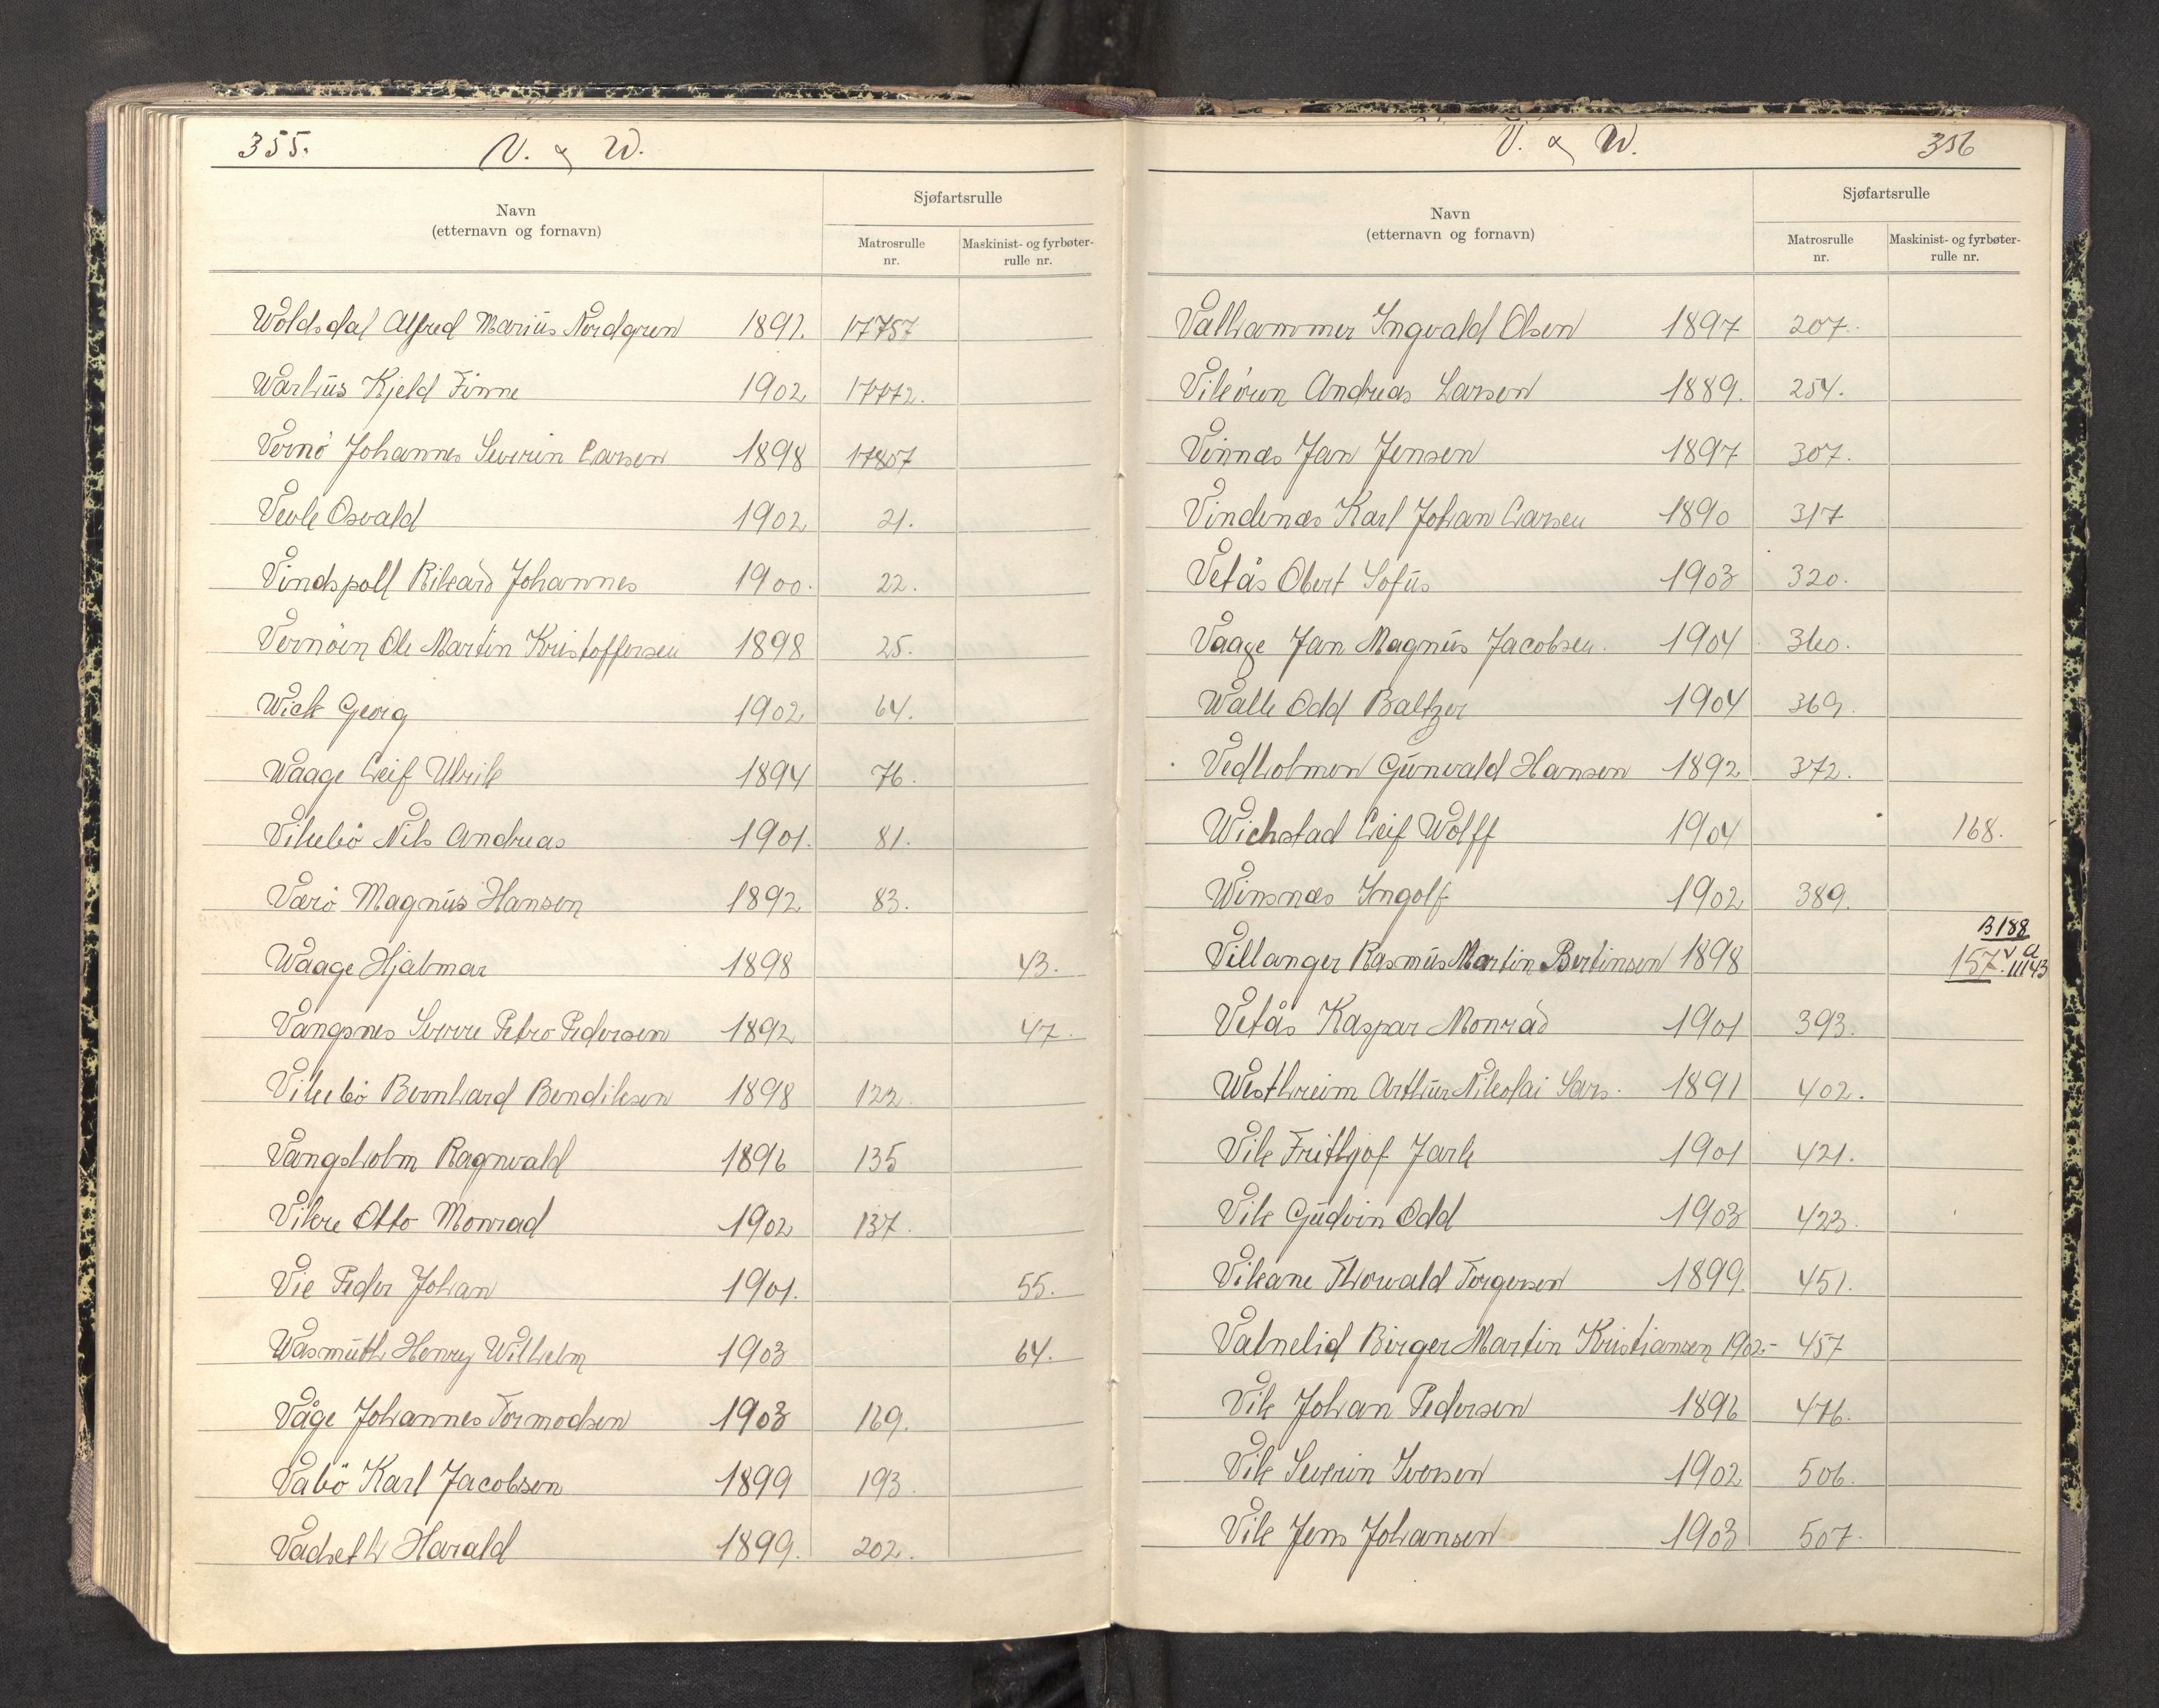 355. V. & W.
Navn
(etternavn og fornavn)
Sjøfartsrulle
Matrosrulle
nr.
Maskinist- og fyrbøter-
rulle nr.
Woldsdal Alfred Marius Nordgren 1891. 17757
Warhus Kjeld Finne 1902 17772.
Vernö Johannes Severin Larsen 1898 17807
Vevle Osvald 1902 21.
Vindspoll Rikard Johannes 1900. 22.
Vernöen Ole Martin Kristoffersen 1898 25.
Wick Georg 1902 64.
Waage Leif Ulrik 1894 76.
Vikebö Nils Andreas 1901. 81.
Værö Magnus Hansen 1892 83.
Waage Hjalmar 1898 43.
Vangsnes Sverre Petro Pedersen 1892 47.
Vikebö Bernhard Bendiksen 1898 122.
Vangsholm Ragnvald 1896 135
Vikre Otto Monrad 1902 137.
Vie Peder Johan 1901. 55.
Wasmuth Henry Wilhelm 1903 64.
Våge Johannes Tormodsen 1903 169.
Vabö Karl Jacobsen 1899 193.
Vadseth Harald 1899. 202.
V. & W. 356
Navn
(etternavn og fornavn)
Sjøfartsrulle
Matrosrulle
nr.
Maskinist- og fyrbøter-
rulle nr.
Valhammer Ingvald Olsen 1897 207.
Vikören Andreas Larsen 1889. 254.
Vinnæs Jan Jensen 1897 307.
Vindenæs Karl Johan Larsen 1890 317
Vetås Obert Sofus 1903 320.
Vaage Jan Magnus Jacobsen. 1904 360.
Walle Odd Baltzer 1904 369.
Vedholmen Gunvald Hansen 1892 372.
Wichstad Leif Wolff 1904 168.
Winsnæs Ingolf 1902 389.
B188
Villanger Rasmus Martin Bertinsen 1898 157. a III43
Vetås Kaspar Monrad 1901 393.
Westhreim Arthur Nikolai Lars. 1891 402.
Vik Frithjof Jarle 1901 421.
Vik Gudvin Odd 1903 423.
Vikane Thorvald Torgersen 1899. 451.
Vatnelid Birger Martin Kristiansen 1902.- 457
Vik Johan Pedersen 1896 476.
Vik Severin Iversen 1902 506.
Vik Jens Johansen 1903 507.